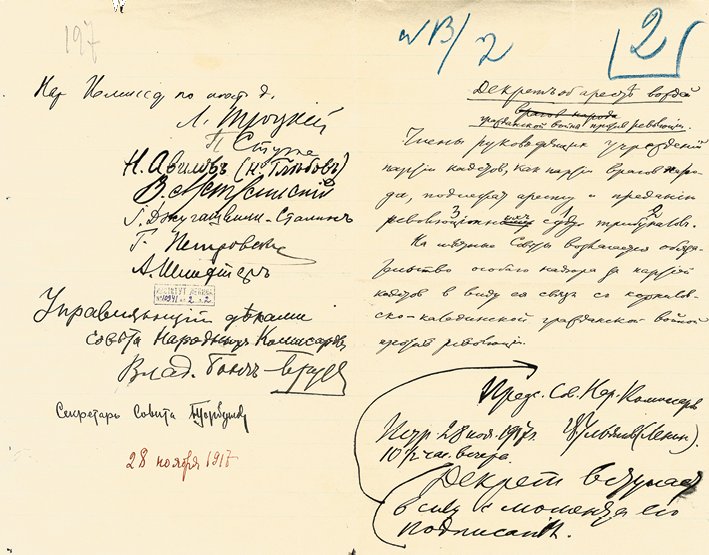 197
Нар Комиссар по иност д.
Л. Троцкій
П Стучка
Н. Авиловъ (Н. Глѣбовъ)
І. Джугашвили-Сталинъ
Г. Петровскі
А. Шлихтеръ
ИНСТИТУТ ЛЕНИНА
Управляющій дѣлами
Совѣта Народныхъ Комиссаровъ
Влад. Бончъ Бруев
Секретарь Совѣта Горбунов
28 ноября 1917
2
2
Декретъ об арестѣ вождей
врагов народа
гражданской войны против революции.
Члены руководящих учреждений
партии кадетов, как партии врагов наро-
да, подлежат аресту и преданию
3 1 2
революционных суду трибуналов.
На мѣстные Совѣты возлагается обяза-
тельство особого надзора за партией
кадетов в виду ея связи со корнилов-
ско-калединской гражданской войной
против революции.
Предс. Св. Нар. Комиссаровъ
Петр. 28 ноя. 1917 г. Вл Ульянов (Ленин).
10 1/2 час. вечера.
Декрет вступает
в силу с момента его
подписанія.